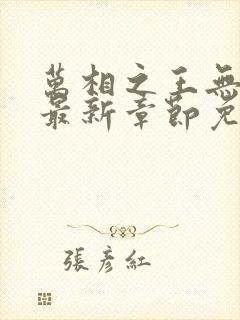 萬相之王無
最新章節免
張彥紅